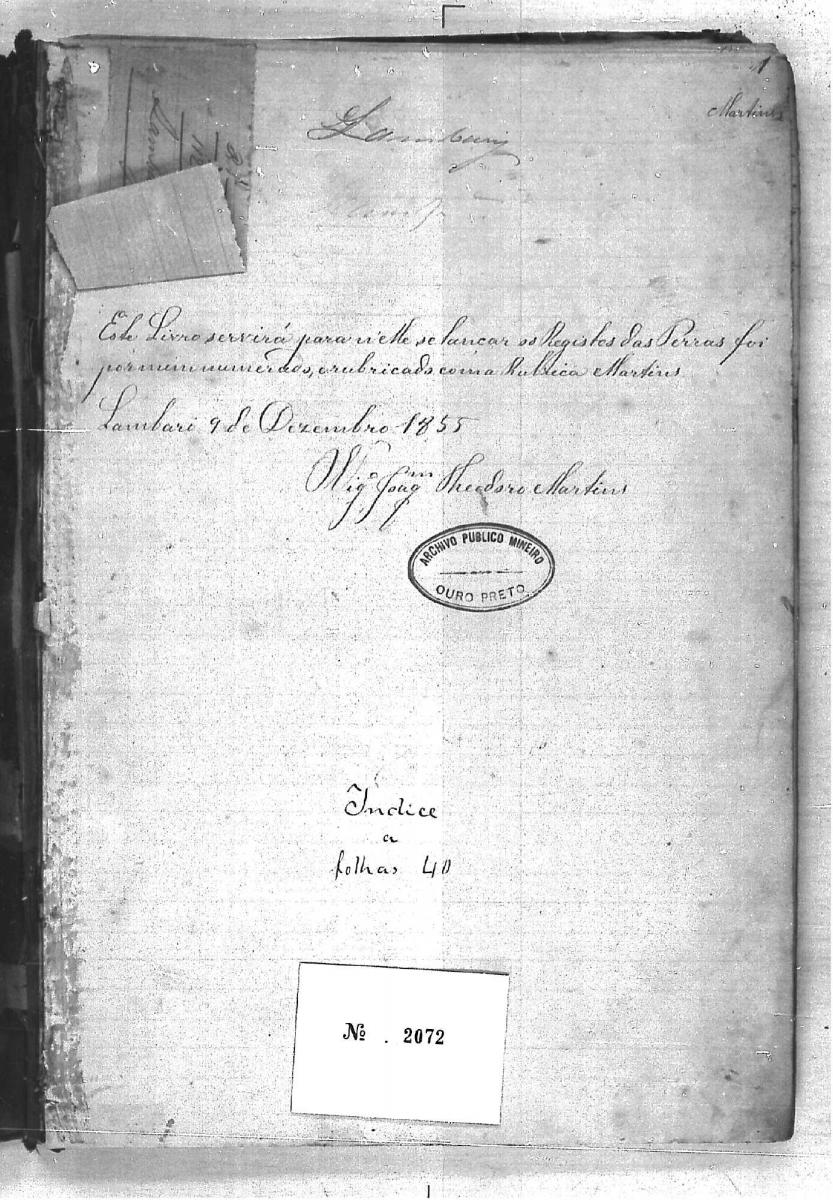 1
Martins
Lambary
Este Livro servirá para n'elle se lancar os Registos das Terras foi
por mim numerado, e rubricado com a Rubrica Martins
Lambari 9 de Dezembro 1855
Vigº Joaqm Theodoro Martins
ARCHIVO PUBLICO MINEIRO
OURO PRETO
Indice
a
folhas 40
№ . 2072